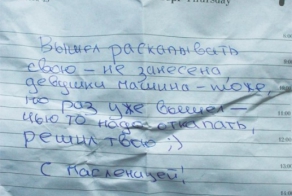 Вышел раскапывать
свою – не занесена
девушки машина – тоже,
но раз уже вышел –
чью то надо откапать,
решил твою ;)
С Масленицей!